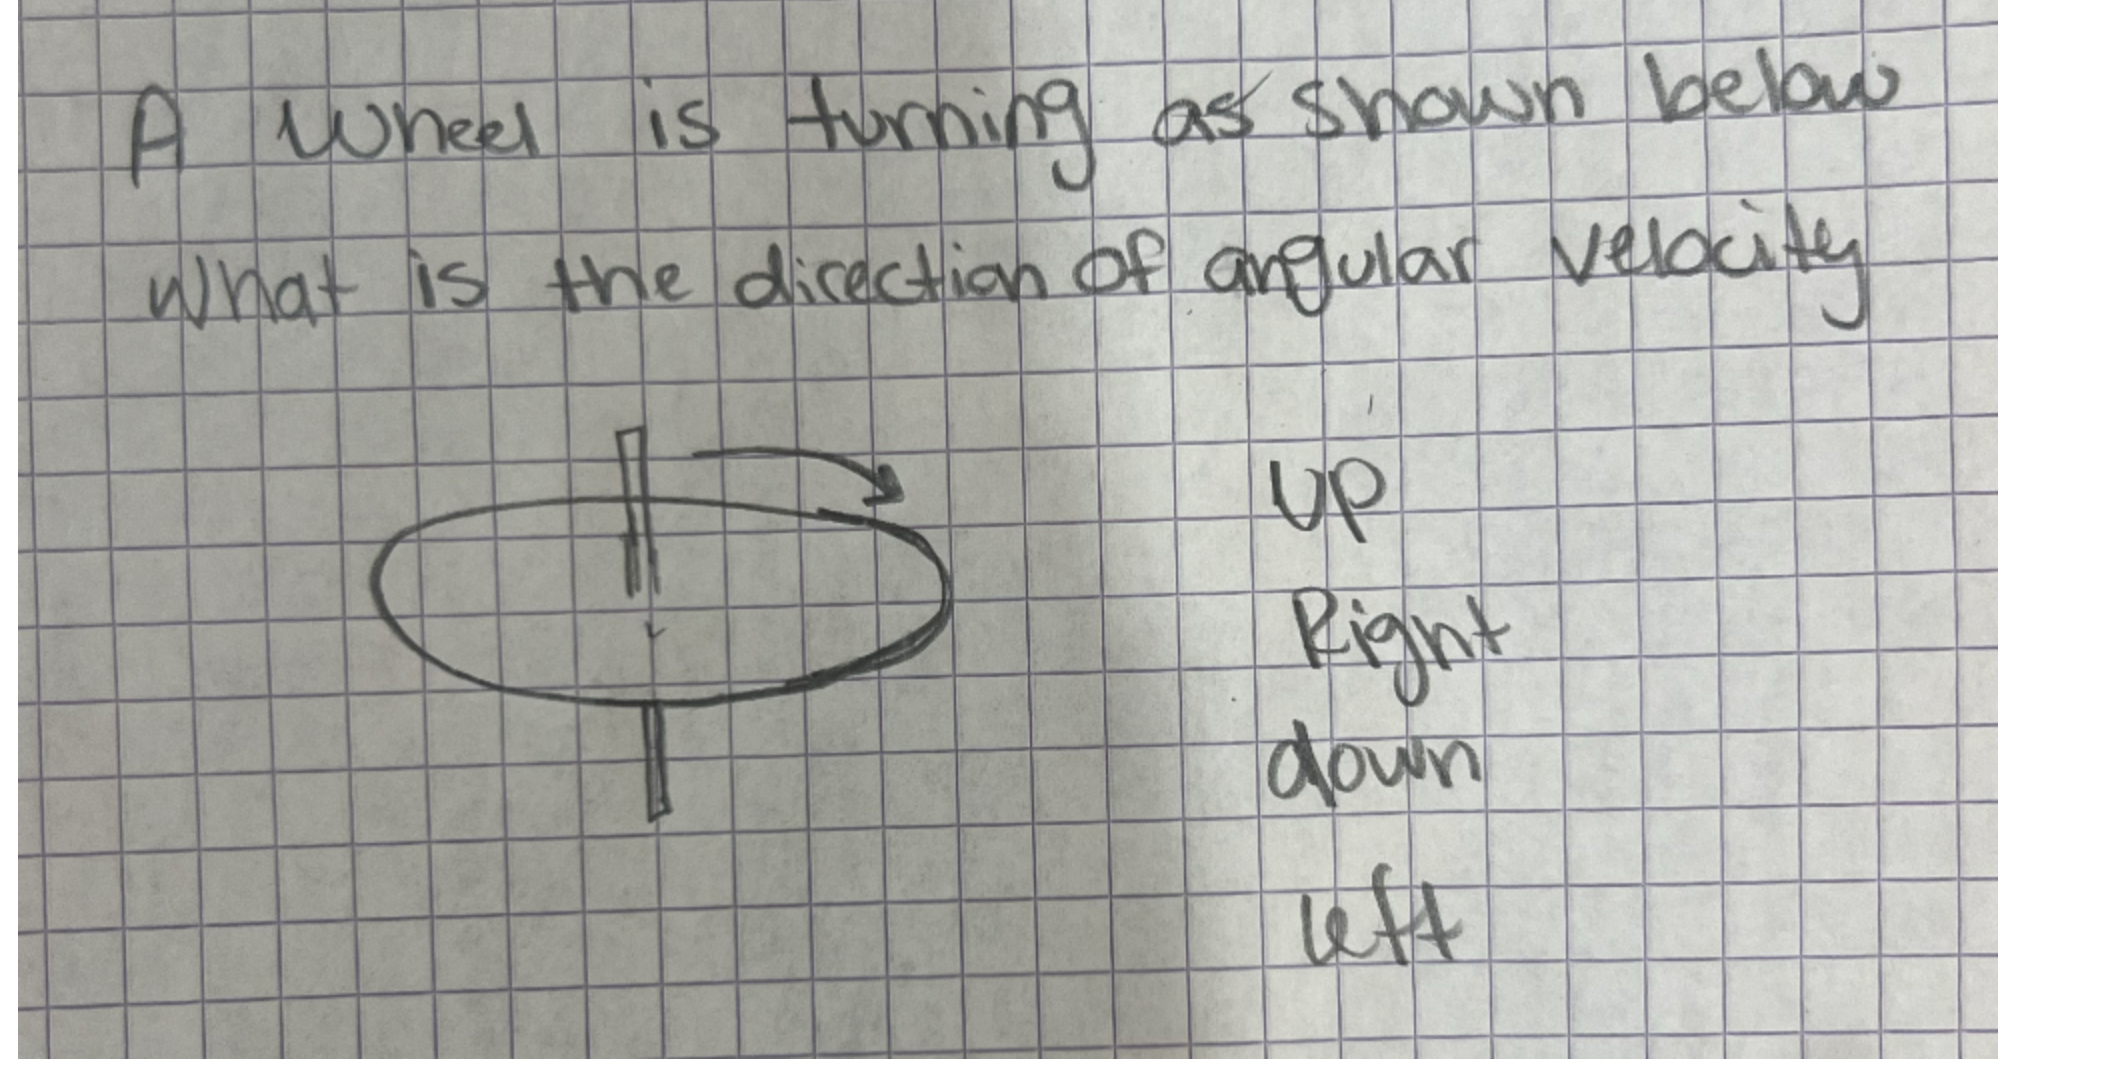 A wheel is turning as shown below
What is the direction of angular velocity
Up
Right
down
left